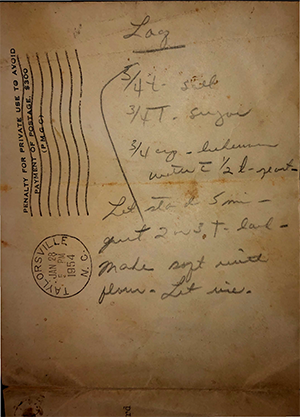 PENALTY FOR PRIVATE USE TO AVOID
PAYMENT OF POSTAGE, $300
3/4 t - salt
3/4 T - sugar
3/4 cup - lukewarm
water 1/2 - yeast -
Let stand 5 min -
2 or 3, T - lard -
Make soft with
flour - Let rise.
TAYLORSVILLE N.C.
JAN 28
PM
1954